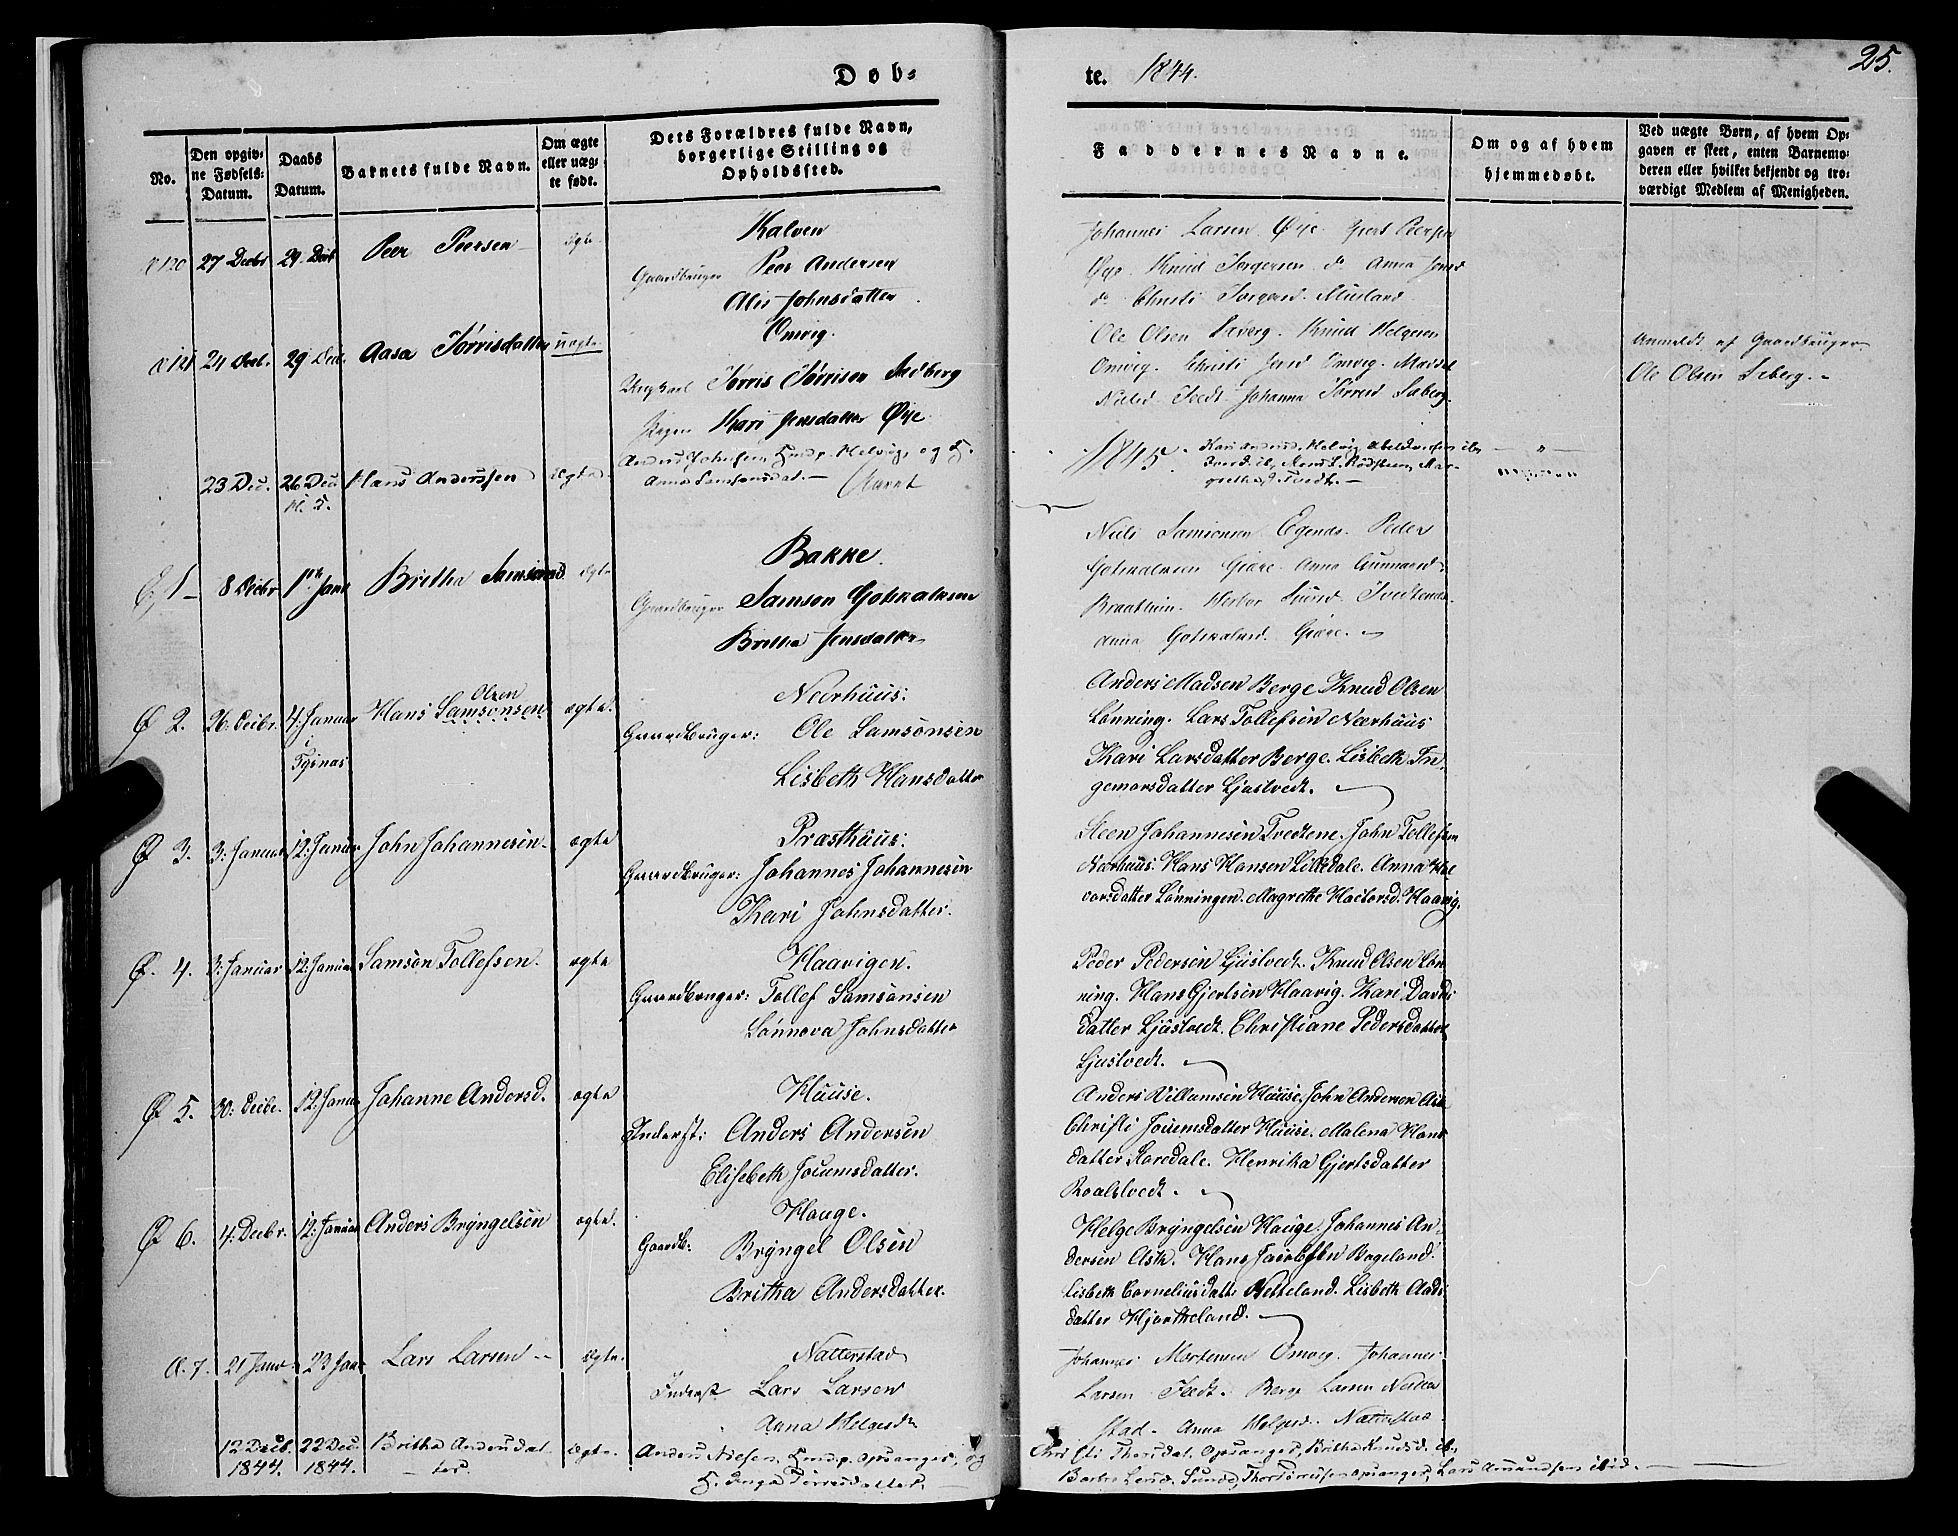 Døb-
te. 1844.
25.
No.
Den opgiv-
ne Fødsels-
Datum.
Daabs
Datum.
Barnets fulde Navn.
Om ægte
eller uæg-
te født.
Dets Forældres fulde Navn,
borgerlige Stilling og
Opholdssted.
Faddernes Navne.
Om og af hvem
hjemmedøbt.
Ved uægte Børn, af hvem Op-
gaven er skeet, enten Barnemo-
deren eller hvilket bekjendt og tro-
værdigt Medlem af Menigheden.
120 27 Decbr 29 Decb Peer Peersen ægte
Kalven
Gaardbruger Peer Andersen
Alis Johnsdatter
Johannes Larsen Øye
Øye. Knud Torgersen do Anna
do Christi
121 24 Decb. 29 Decb. Aasa Tørrisdatter uægte
Omvig.
Ungkarl Tørris Tørrisen Sæberg
Pigen Kari Jensdatter Øye
Ole Olsen Sæberg. Knud Helgesen
Omvig. Christi Omvig.
Tvedt Johanna
Anmeldt af Gaardbruger
Ole Olsen Seberg.
23 Dec. 26 Dec. Hans Anderssen ægte
Anders Johnsen, Helvig, og
Anna Samsonsdat.
1845.
1 8 Decbr 1ste Janr Britha Samsonsd. ægte
Bakke.
Gaardbruger Samson Gotskalksen
Britha Jensdatter
Niels Samsonsen Peder
Gotskalksen Gjære. Anna
Anna Gotskalksd. Gjære.
Ø 2. 26: Decbr. 4: Januar Hans Samsonsen ægte.
Olsen
i
Tysnæs
Neerhuus:
Gaardbruger: Ole Samsonsen
Lisbeth Hansdatter
Anders Madsen Berge. Knud Olsen
Lønning. Lars Tollefsen Neerhuus
Kari Larsdatter Berge. Lisbeth In-
gemorsdatter Ljostvedt.
Ø 3. 3: Januar 12: Januar John Johannesen ægte
Præsthuus:
Gaardbruger: Johannes Johannesen
Kari Johnsdatter.
Steen Johannesen Tvedtene. John Tollefsen
Neerhuus. Hans Hansen Lilledale. Anna Hal
vorsdatter Lønningen. Magrethe Hactorsd. Haavig.
Ø. 4. 3: Januar 12: Januar Samson Tollefsen. ægte
Haavigen.
Gaardbruger: Tollef Samsonsen
Lønnova Johnsdatter
Peder Pedersen Ljostvedt. Knud Olsen Løn
ning. Hans Gjertsen Haavig. Kari Davids
datter Ljostvedt. Christiane Pedersdatter
Ljostvedt.
Ø 5. 30: Decbr. 12: Januar Johanne Andersd. ægte
Huuse.
Inderst: Anders Andersen
Elisebeth Jocumsdatter.
Anders Villumsen Huuse. John Andersen Ask
Christi Jocumsdatter Huuse. Malena Hans
datter Raredale. Henrika Gjertsdatter
Roaldtvedt.
Ø 6. 4: Decbr. 12: Januar Anders Brÿngelsen ægte.
Hauge.
Gaardb: Brÿngel Olsen
Britha Andersdatter.
Helge Brÿngelsen Hauge. Johannes An-
dersen Ask. Hans Jacobsen Bageland.
Lisbeth Corneliusdatt. Netteland. Lisbeth
datter Hjortheland.
7. 21 Janr 23 Janr Lars Larsen ægte.
Natterstad
Inderst Lars Larsen
Anna Helgesdr
Johannes Mortensen Omvig. Johannes
Larsen Tvedt. Berge Larsen Natter
stad. Anna Helgesd. Natterstad.
12 Decb. 22 Dec. Britha Andersdat- ægte.
1844. 1844. ter.
Anders Nielsen, Opsanger, og
Inga Tørresdatter.
Christi Thorsdat. Opsanger, Britha Knudsd. ib.
Sunde, Opsanger, Lars Amundsen ibid.